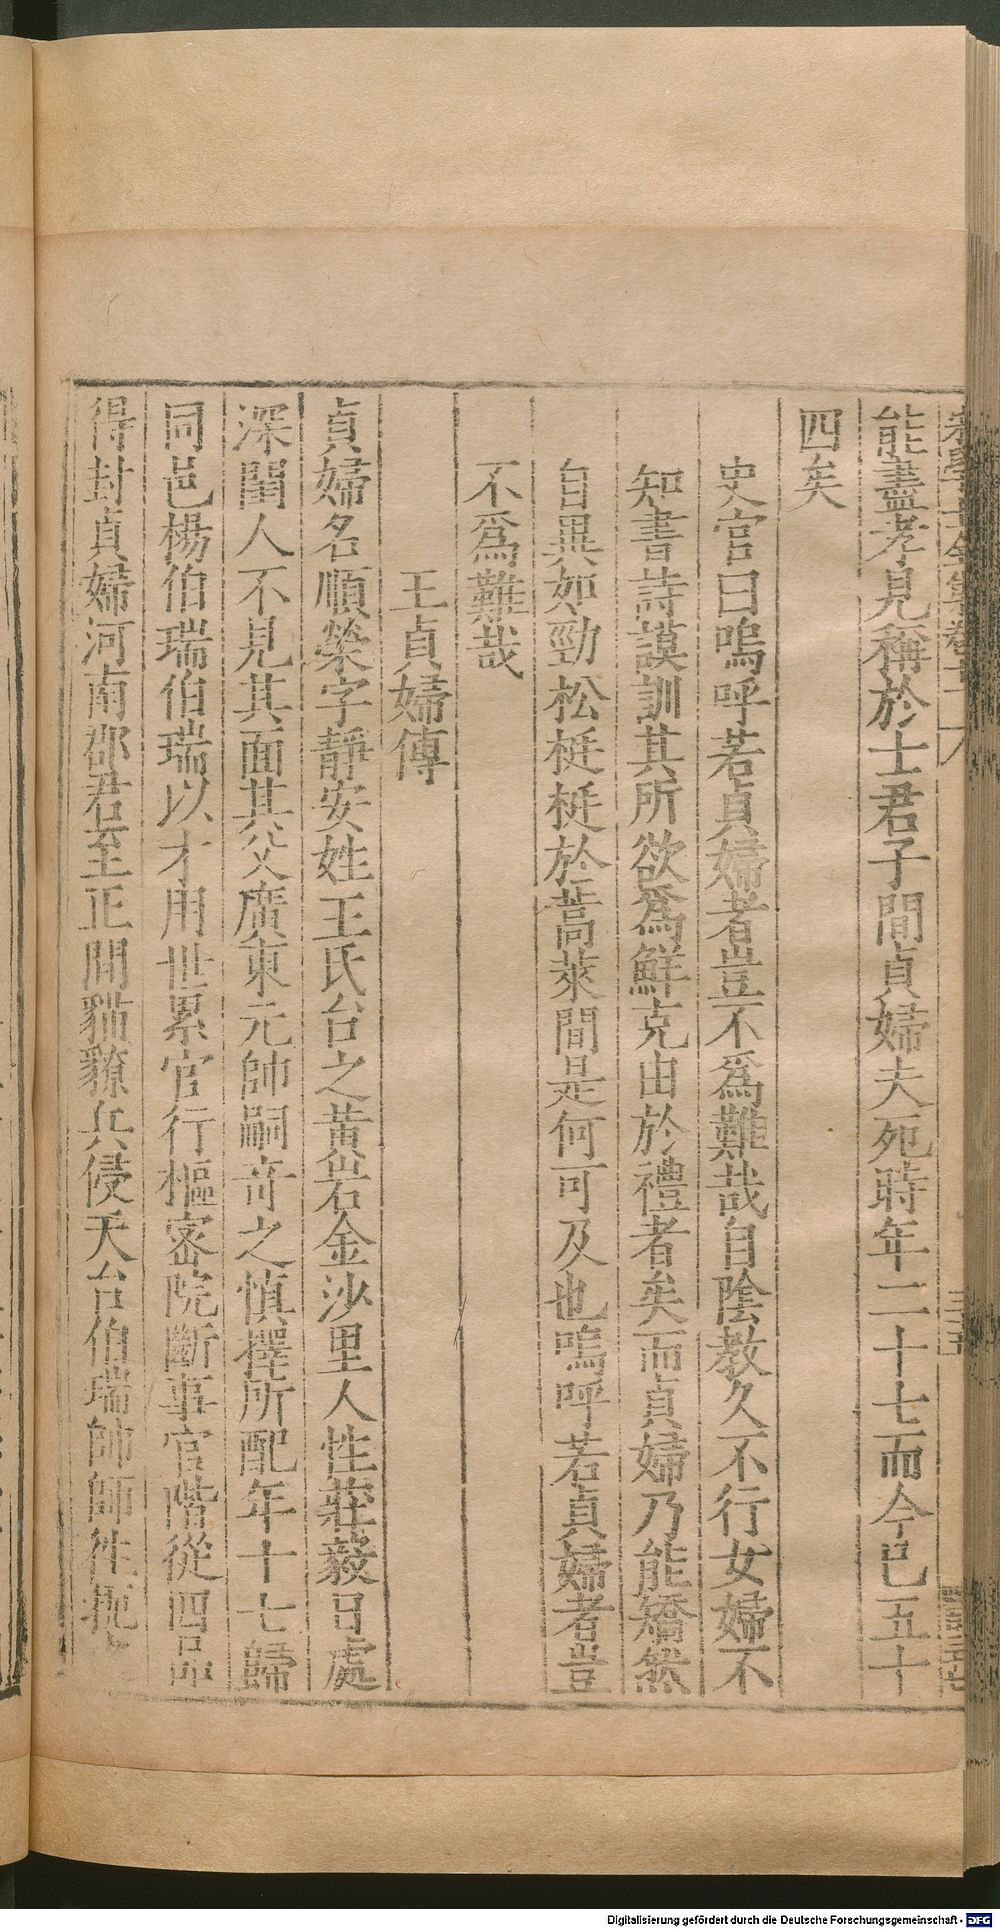 能盡孝見稱於士君子間貞婦夫死時年二十七而今已五十
四矣
史官曰嗚呼若貞婦者豈不爲難哉自陰教久不行女婦不
知書詩謨訓其所欲爲鮮克由於禮者矣而貞婦乃能矯然
自異如勁松挺挺於蒿萊間是何可及也嗚呼若貞婦者豈
不爲難哉
王貞婦傳
貞婦名順榮字靜安姓王氏台之黃岩金沙里人性莊毅日處
深閨人不見其面其父廣東元帥嗣奇之慎擇所配年十七歸
同邑楊伯瑞伯瑞以才用世累官行樞密院斷事官階從四品
得封貞婦河南郡君至正間貓獠兵侵天台伯瑞帥師往
Digitalisierung gefördert durch die Deutsche Forschungsgemeinschaft - DFG